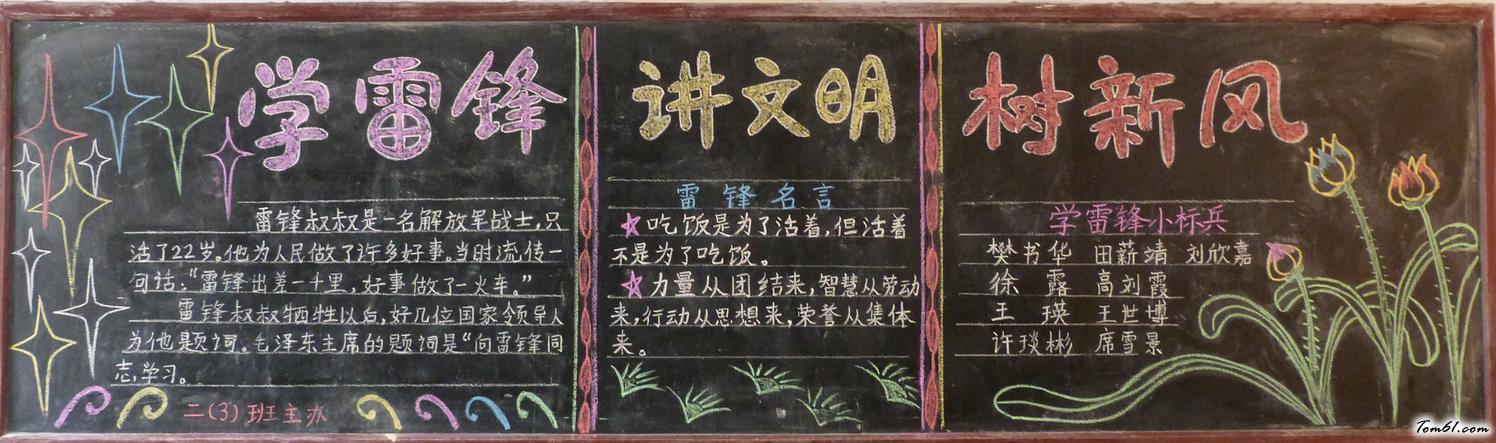 学雷锋
雷锋叔叔是一名解放军战士,只
活了22岁。他为人民做了许多好事。当时流传一
句话:“雷锋出差一千里,好事做了一火车。”
雷锋叔叔牺牲以后,好几位国家领导人
为他题词。毛泽东主席的题词是“向雷锋同
志学习。
二(3)班主办
讲文明
雷锋名言
吃饭是为了活着,但活着
不是为了吃饭。
力量从团结来,智慧从劳动
来,行动从思想来,荣誉从集体
来。
树新风
学雷锋小标兵
樊书华 田薪靖 刘欣嘉
徐露 高刘霞
王瑛 王世博
许琰彬 席雪景
Tom61.com